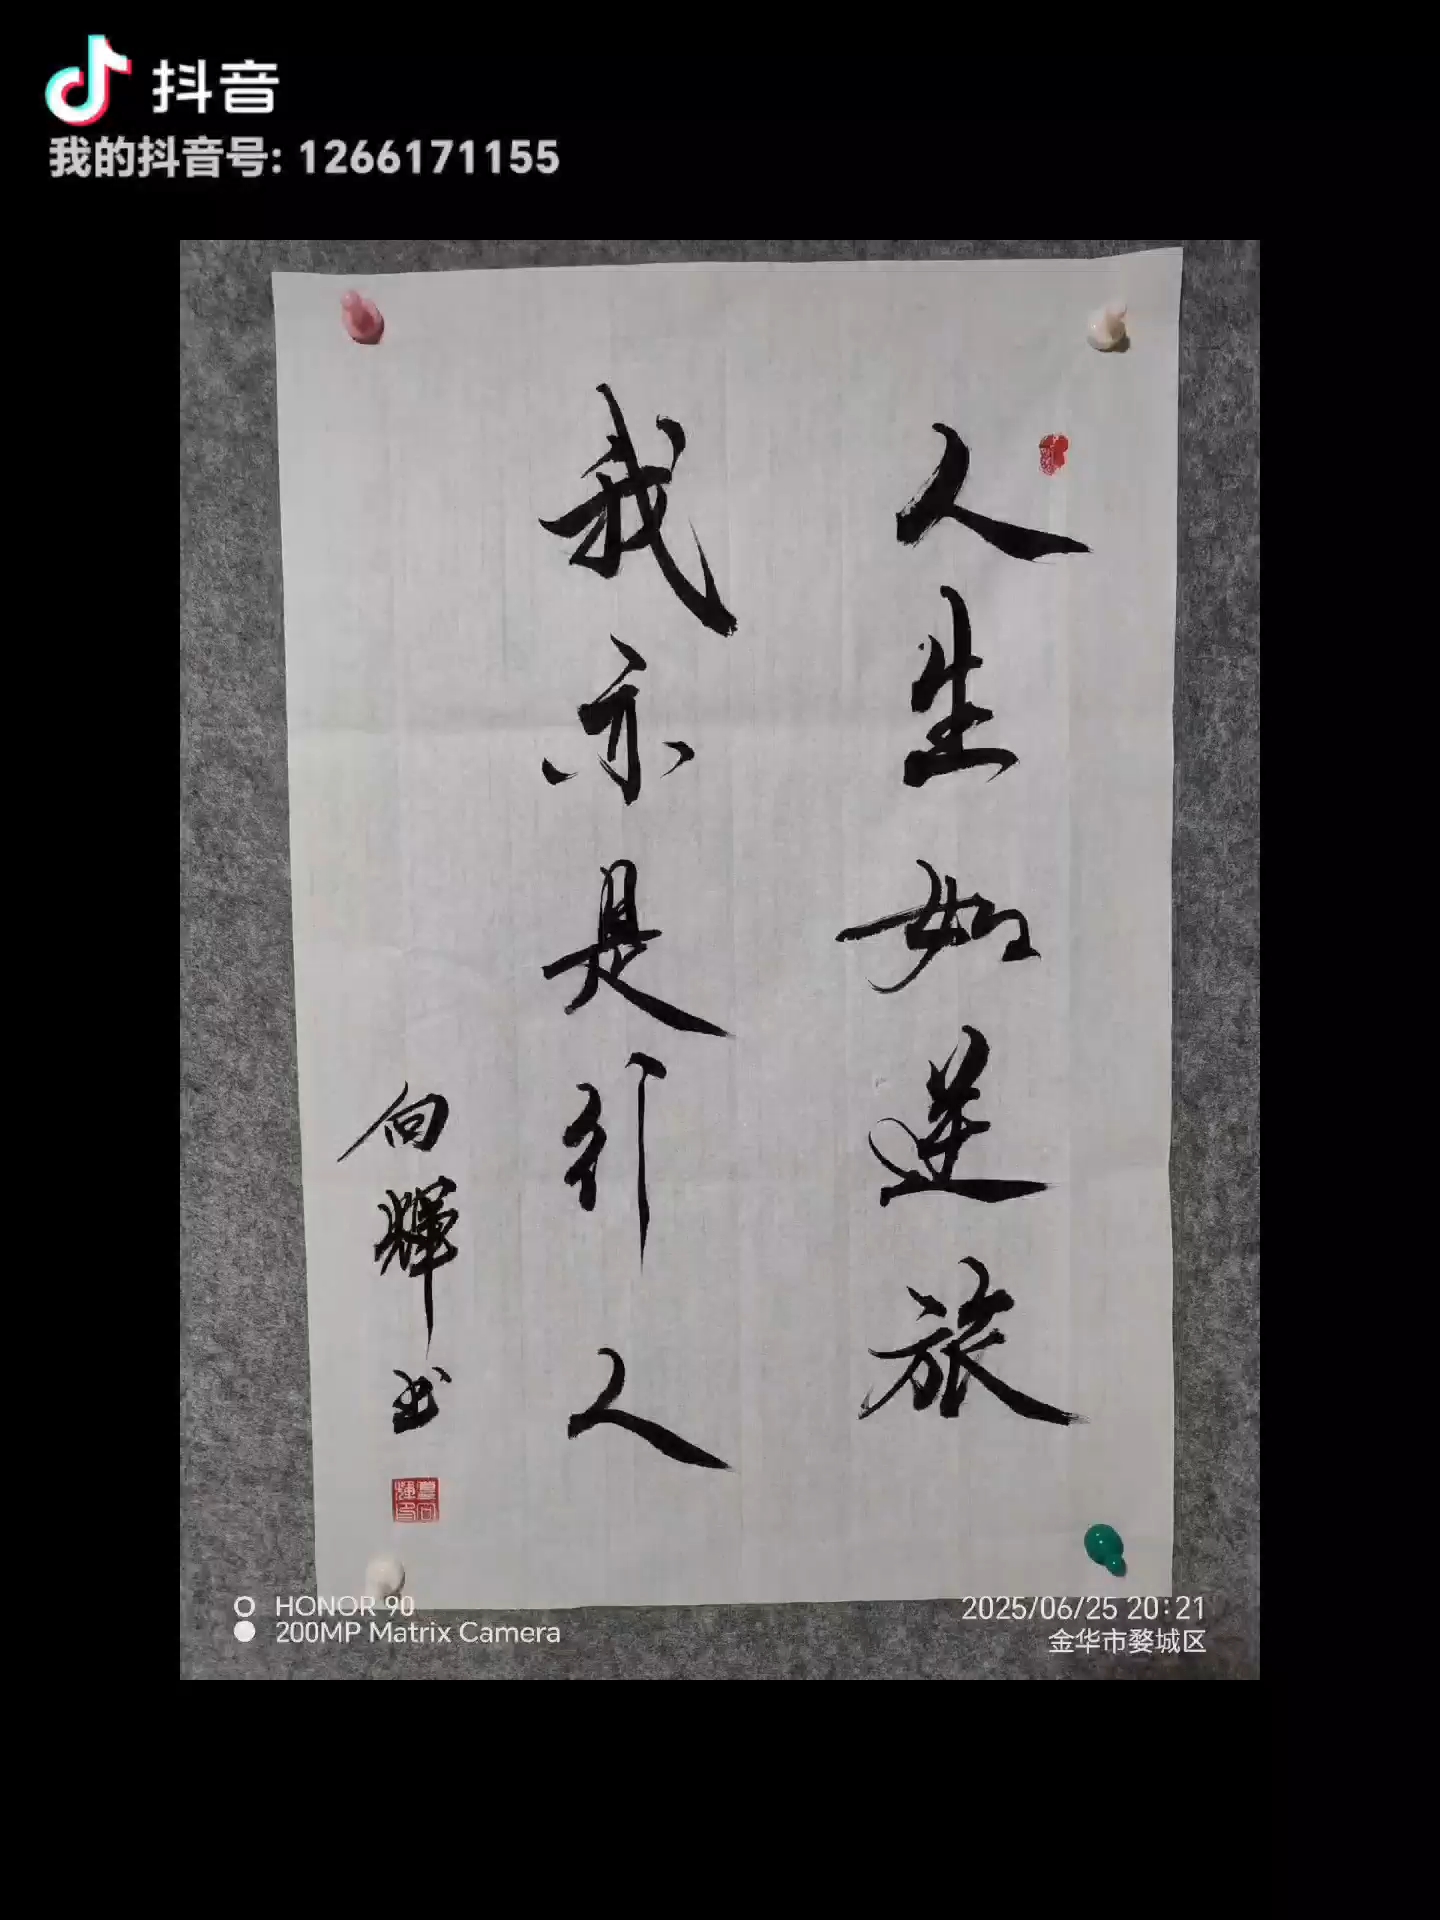 抖音
我的抖音号: 1266171155
人生如逆旅
我亦是行人
向輝书
HONOR 90
200MP Matrix Camera
2025/06/25 20:21
金华市婺城区